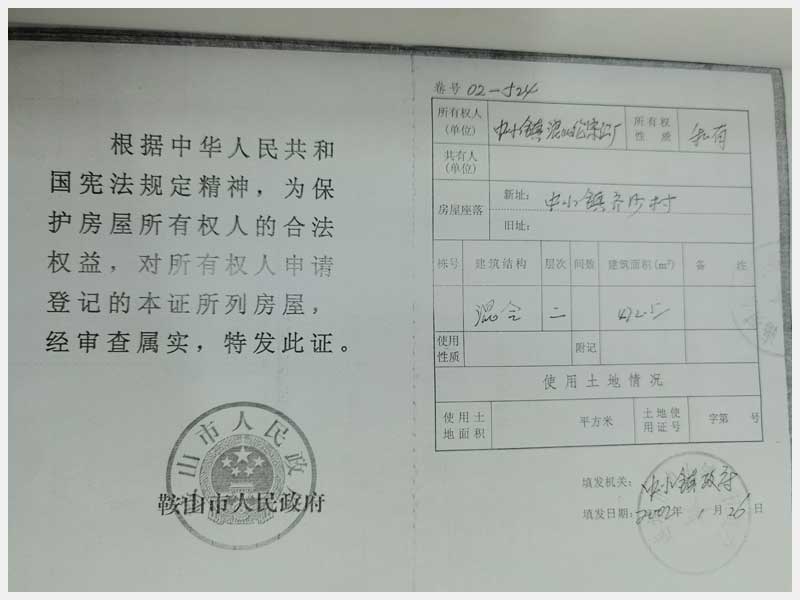 根据中华人民共和
国宪法规定精神，为保
护房屋所有权人的合法
权益，对所有权人申请
登记的本证所列房屋，
经审查属实，特发此证。
山市人民政
鞍山市人民政府
卷号 02-524
所有权人(单位) 中小镇 所有权性质 私有
共有人(单位)
房屋座落 新址：中小镇齐沙村
旧址：
栋号 建筑结构 层次 间数 建筑面积(m²) 备 注
混合 二
使用性质 附记
使用土地情况
使用土地面积 平方米 土地使用证号 字第 号
填发机关：中小镇政府
填发日期：2002年1月26日